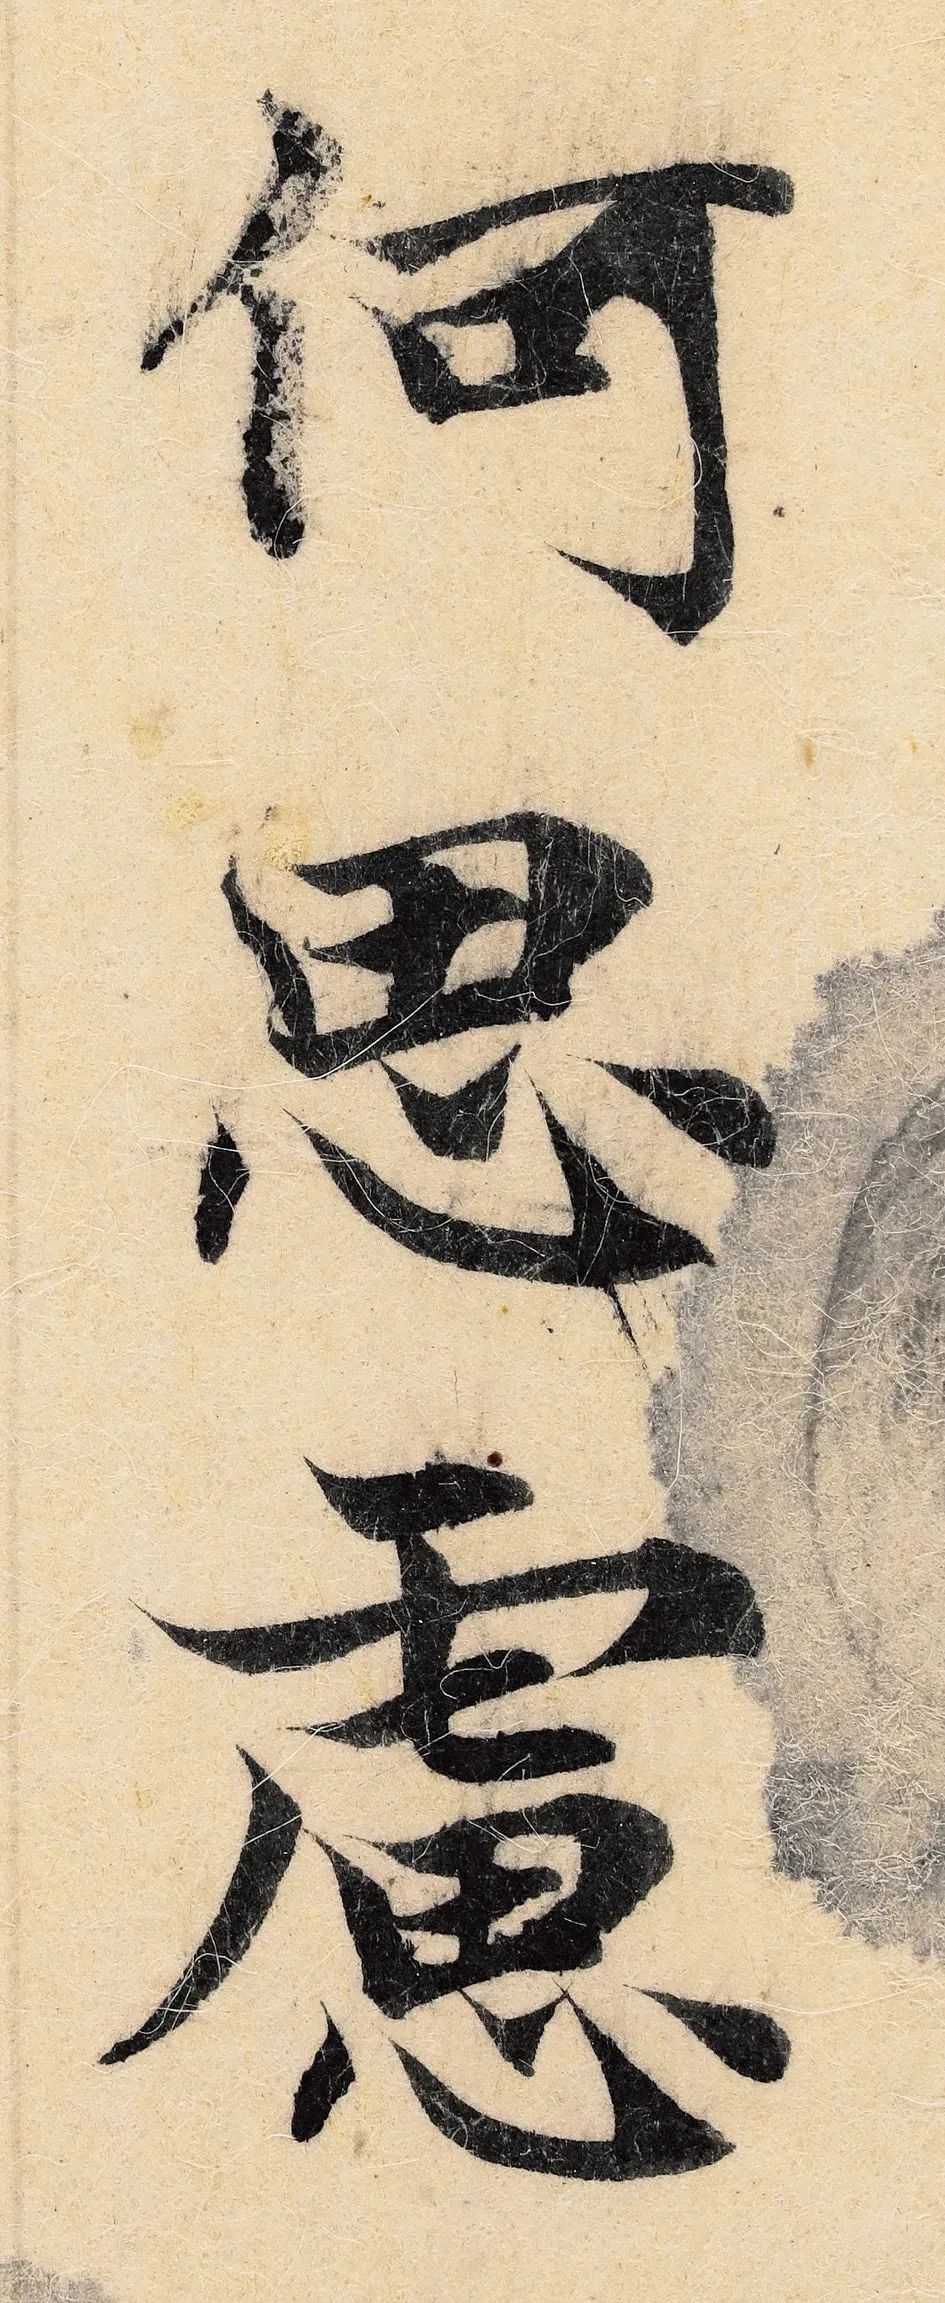 何思慮